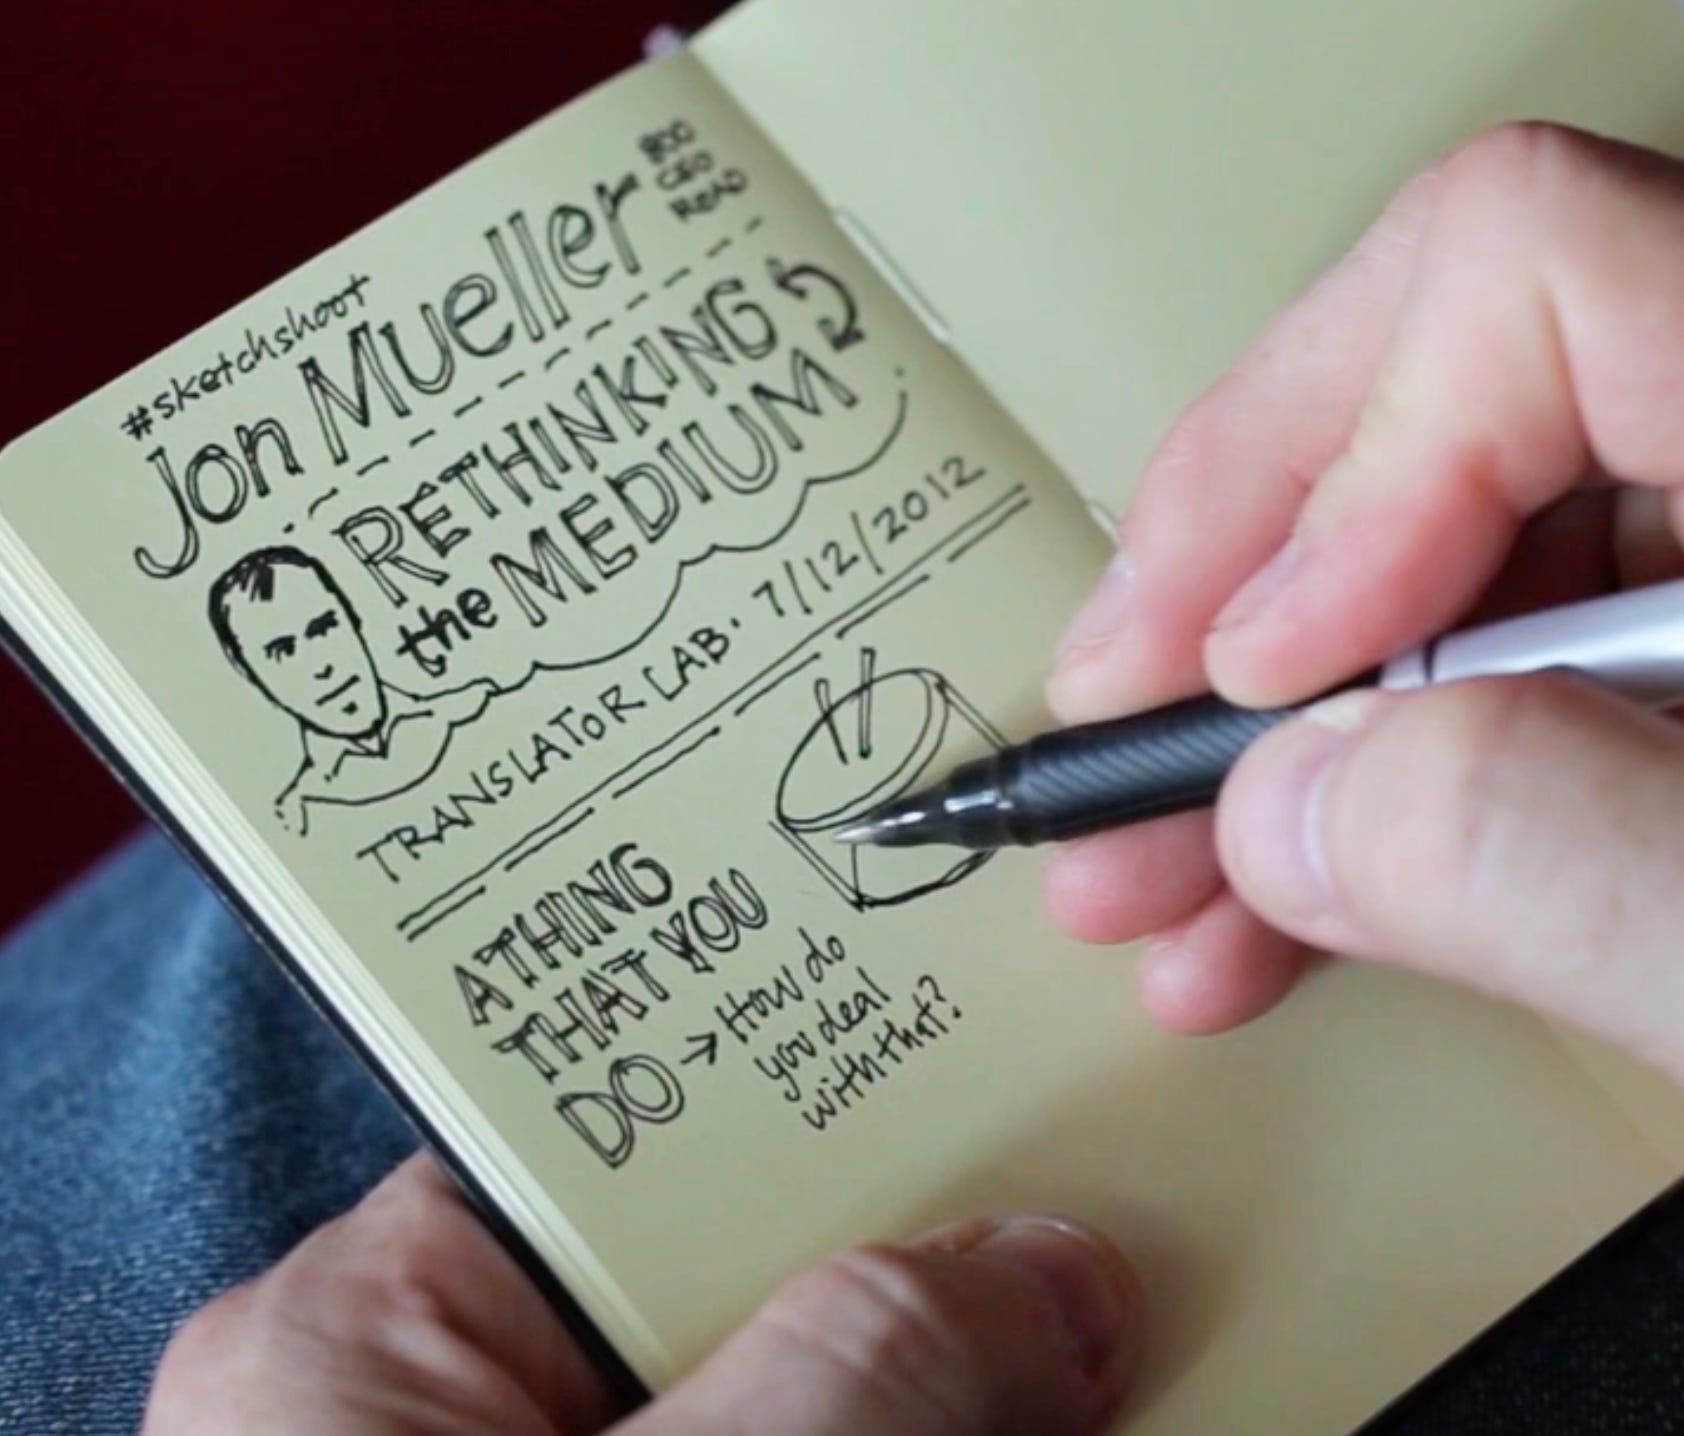 #sketchshoot
Jon Mueller
800
CEO
READ
RETHINKING
the MEDIUM
TRANSLATOR LAB. 7/12/2012
A THING
THAT YOU
DO → How do
you deal
with that?